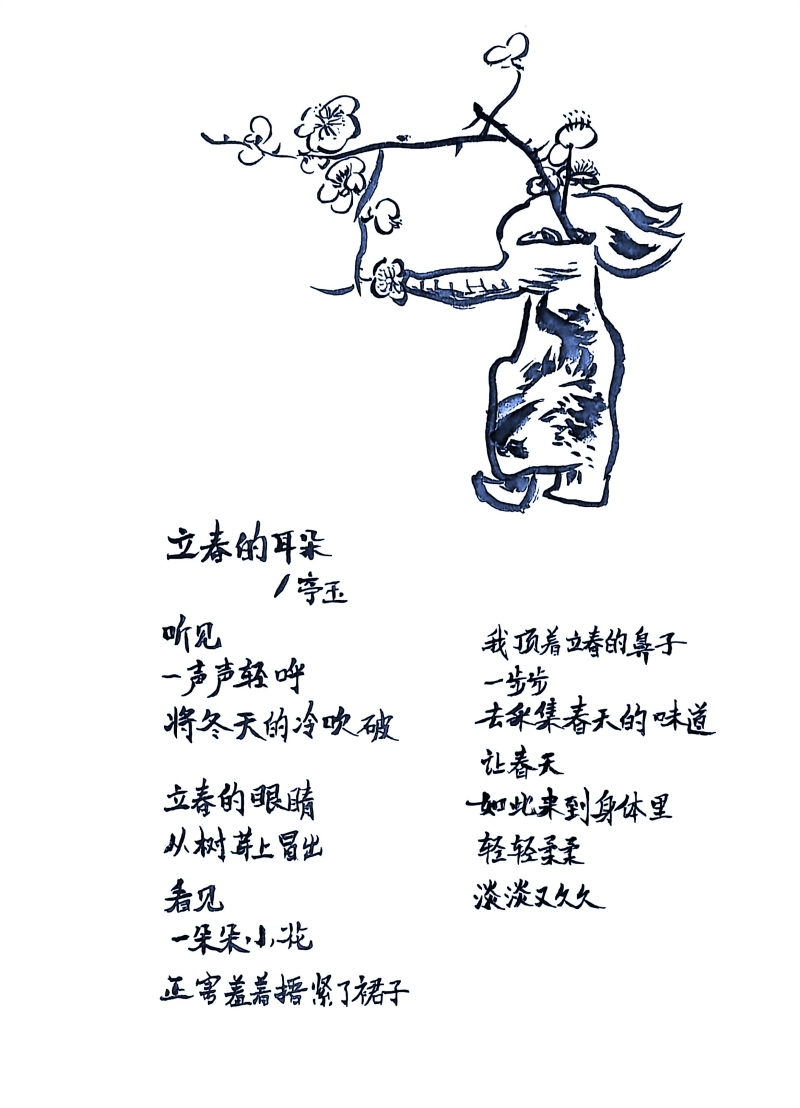 立春的耳朵
/亭玉
听见
一声声轻呼
将冬天的冷吹破
立春的眼睛
从树芽上冒出
看见
一朵朵小花
正害羞着捂紧了裙子
我顶着立春的鼻子
一步步
去采集春天的味道
让春天
如此来到身体里
轻轻柔柔
淡淡又久久